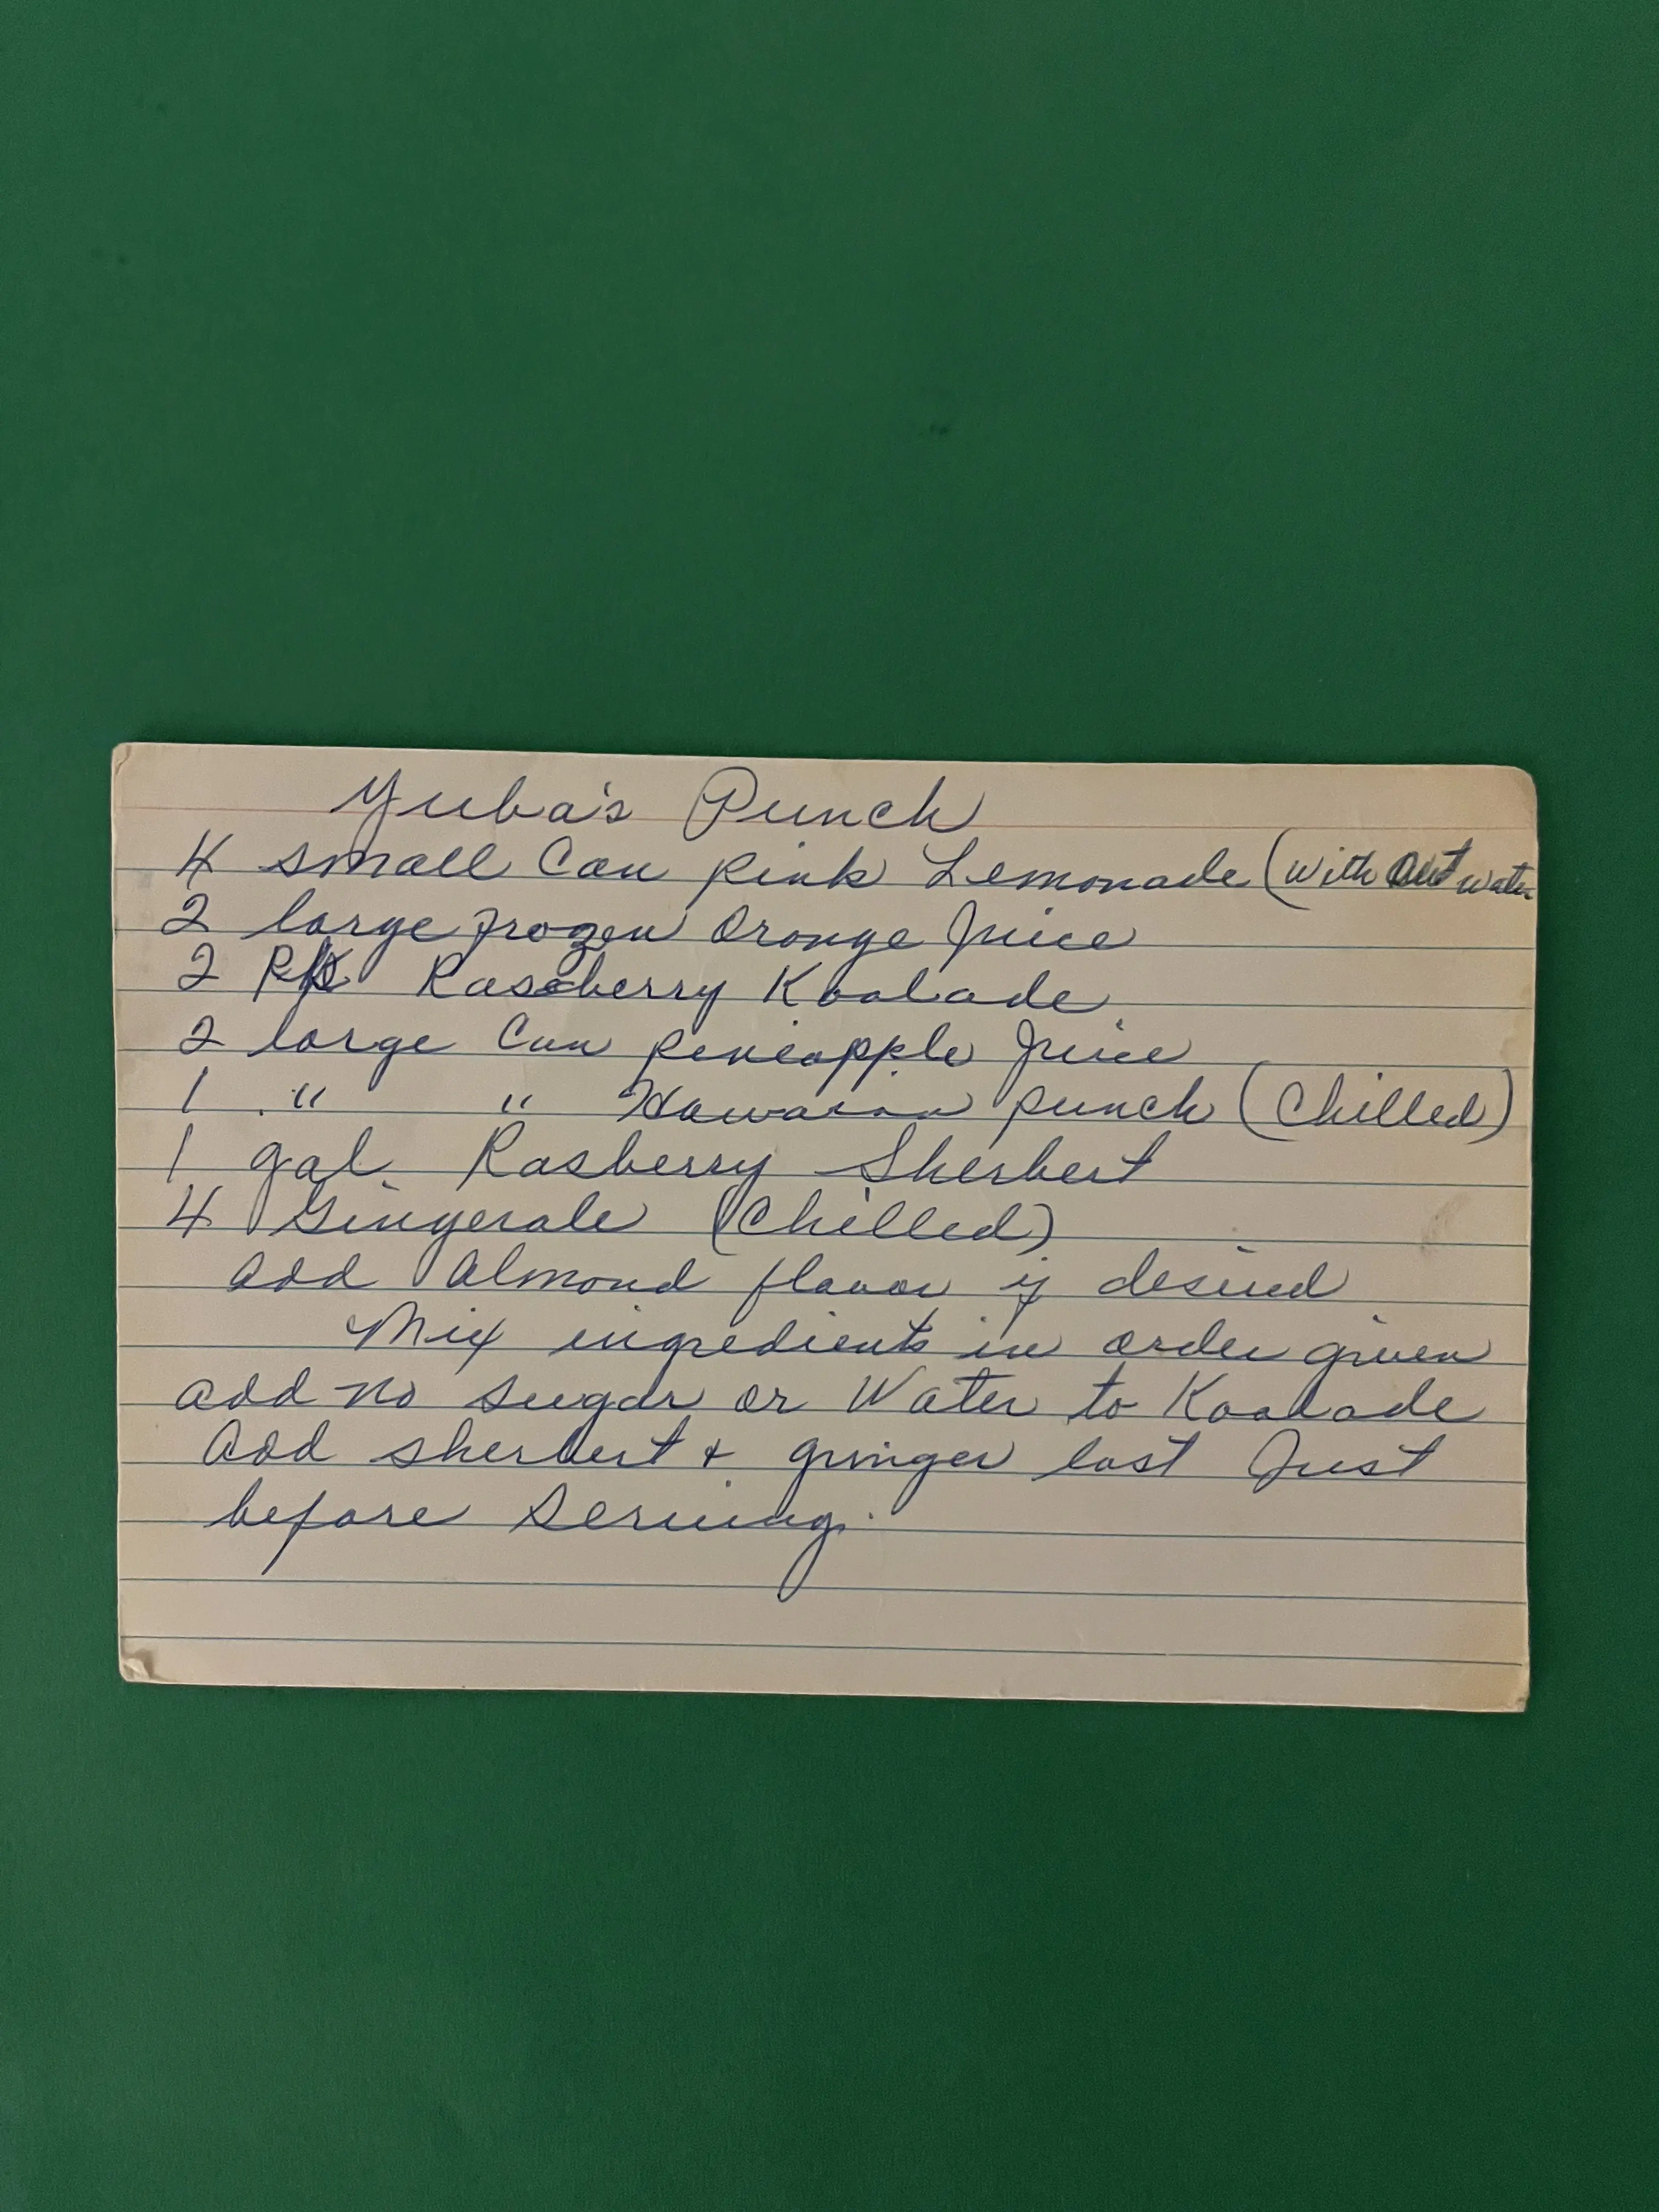 Yuba's Punch
4 small Can pink Lemonade (with out water
2 large frozen Orange Juice
2 Pk Rasberry Koolade
2 large Can pineapple Juice
1 " " Hawaian punch (Chilled)
1 gal. Rasberry Sherbert
4 Gingerale (Chilled)
add Almond flavor if desired
Mix ingredients in order given
add no sugar or Water to Koolade
Add sherbert + ginger last Just
before Serving.